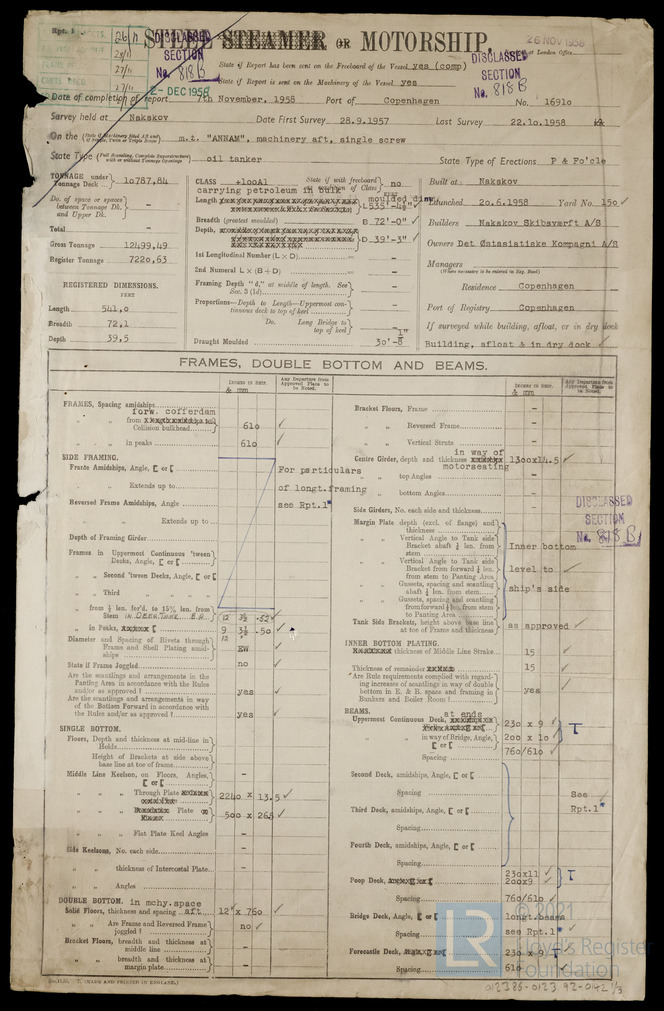 Rpt. 1
26 NOV 1958
STEEL STEAMER OR MOTORSHIP
Received at London Office
DISCLASSED SECTION No. 818B
State if Report has been sent on the Freeboard of the Vessel yes (comp)
State if Report is sent on the Machinery of the Vessel yes
DISCLASSED SECTION No. 818B
2 - DEC 1958
Date of completion of report 7th November, 1958 Port of Copenhagen No. 16910
Survey held at Nakskov Date First Survey 28.9.1957 Last Survey 22.10.1958
On the m.t. "ANNAM", machinery aft, single screw
State Type oil tanker State Type of Erections P & Fo'cle
TONNAGE under Tonnage Deck 10787,84
No. of space or spaces between Tonnage Dk. and Upper Dk.
Total —
Gross Tonnage 12499,49
Register Tonnage 7220,63
REGISTERED DIMENSIONS.
FEET
Length 541,0
Breadth 72,1
Depth 39,5
CLASS +100A1 State if with freeboard condition of Class no
carrying petroleum in bulk
moulded dim.
Length L 535'-4½"
Breadth (greatest moulded) B 72'-0"
Depth, D 39'-3"
1st Longitudinal Number (L × D) –
2nd Numeral L × (B + D) –
Framing Depth "d," at middle of length. See Sec. 3 (1d) –
Proportions—Depth to Length—Uppermost continuous deck to top of keel
Do. Long Bridge to top of keel –
Draught Moulded 30'-
Built at Nakskov
Launched 20.6.1958 Yard No. 150
Builders Nakskov Skibsværft A/S
Owners Det Østasiatiske Kompagni A/S
Managers
(Where necessary to be entered in Reg. Book)
Residence Copenhagen
Port of Registry Copenhagen
If surveyed while building, afloat, or in dry dock
Building, afloat & in dry dock
FRAMES, DOUBLE BOTTOM AND BEAMS.
INCHES IN SHIP. & mm
Any Departure from Approved Plans to be Noted.
FRAMES, Spacing amidships
forw. cofferdam
from Collision bulkhead 610
" " in peaks 610
SIDE FRAMING.
Frame Amidships, Angle, [ or [
" " Extends up to
Reversed Frame Amidships, Angle
" " Extends up to
For particulars
of longt.framing
see Rpt.1*
Depth of Framing Girder
Frames in Uppermost Continuous 'tween Decks, Angle, [ or [
" " Second 'tween Decks, Angle, [ or [
" " Third " "
" from ⅕ len. for'd. to 15% len. from Stem IN DEEP TANK. E.R. 12 3½ .52
" in Peaks, [ 9 3½ .50
12
Diameter and Spacing of Rivets through Frame and Shell Plating amidships EW
State if Frame Joggled no
Are the scantlings and arrangements in the Panting Area in accordance with the Rules and/or as approved? yes
Are the scantlings and arrangements in way of the Bottom Forward in accordance with the Rules and/or as approved? yes
SINGLE BOTTOM.
Floors, Depth and thickness at mid-line in Holds
Height of Brackets at side above base line at toe of frame
Middle Line Keelson, on Floors, Angles, [ or [ –
" " Through Plate 2240 x 13.5
" " Plate 500 x 26.5
" " Flat Plate Keel Angles –
Side Keelsons, No. each side –
" " thickness of Intercostal Plate –
" " Angles –
DOUBLE BOTTOM. in mchy.space
Solid Floors, thickness and spacing aft 12 x 760
" " Are Frame and Reversed Frame joggled? no
Bracket Floors, breadth and thickness at middle line –
" " breadth and thickness at margin plate –
INCHES IN SHIP. & mm
Any Departure from Approved Plans to be Noted.
Bracket Floors, Frame –
" " Reversed Frame –
" " Vertical Struts –
in way of
Centre Girder, depth and thickness 1300x14.5
motorseating
" " top Angles –
" " bottom Angles –
Side Girders, No. each side and thickness –
Margin Plate depth (excl. of flange) and thickness
" " Vertical Angle to Tank side Bracket abaft ¼ len. from stem
" " Vertical Angle to Tank side Bracket from forward ¼ len. from stem to Panting Area
" " Gussets, spacing and scantling abaft ¼ len. from stem
" " Gussets, spacing and scantling from forward ¼ len. from stem to Panting Area
Inner bottom
level to
ship's side
Tank Side Brackets, height above base line at toe of Frame and thickness as approved
DISCLASSED SECTION No. 818B
INNER BOTTOM PLATING.
thickness of Middle Line Strake 15
Thickness of remainder 15
Are Rule requirements complied with regarding increases of scantlings in way of double bottom in E. & B. space and framing in Bunkers and Boiler Room? yes
BEAMS. at ends
Uppermost Continuous Deck, 230 x 9
" " in way of Bridge, Angle, [ or [ 200 x 10
T
Spacing 760/610
Second Deck, amidships, Angle, [ or [
Spacing
See
Rpt.1*
Third Deck, amidships, Angle, [ or [
Spacing
Fourth Deck, amidships, Angle, [ or [
Spacing
Poop Deck, 230x11
200x9
T
Spacing 760/610
Bridge Deck, Angle, [ or [ longt.beams
Spacing see Rpt.1*
Forecastle Deck, 230 x 9 T
Spacing 610
© 2021
LR
Lloyd's Register
Foundation
(MADE AND PRINTED IN ENGLAND.)
012386-012392-0142 1/3